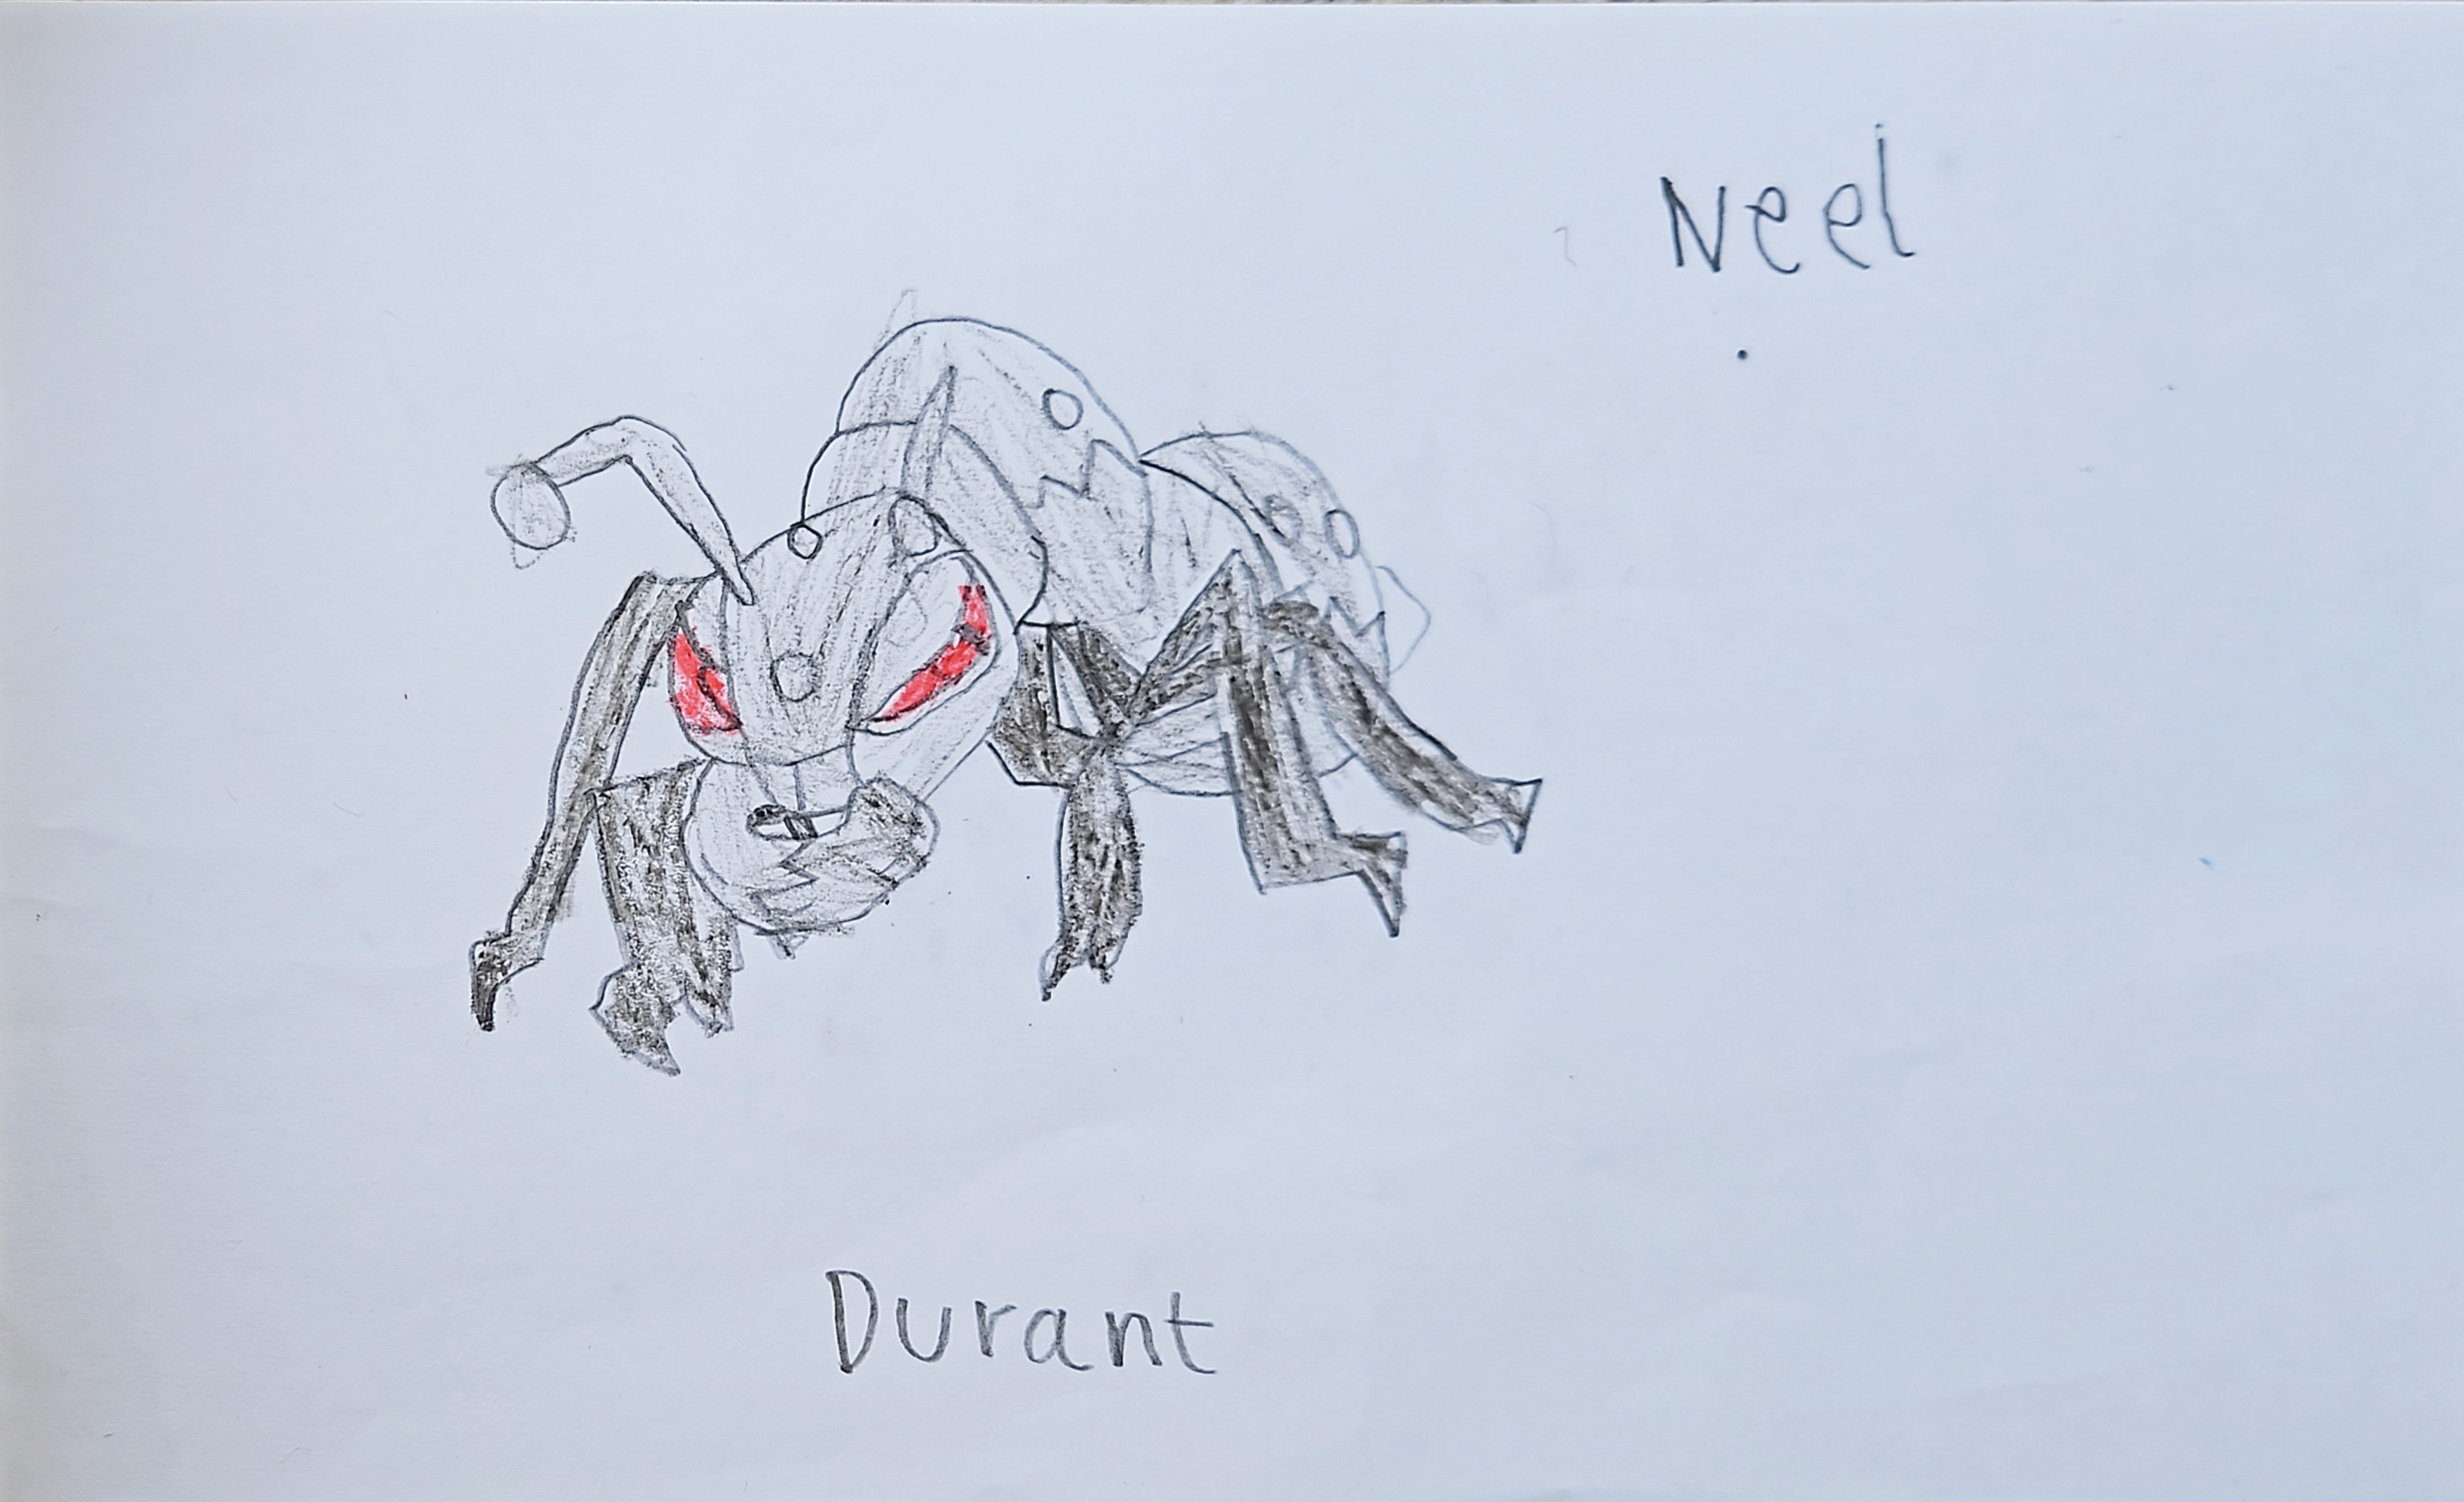 Neel
Durant